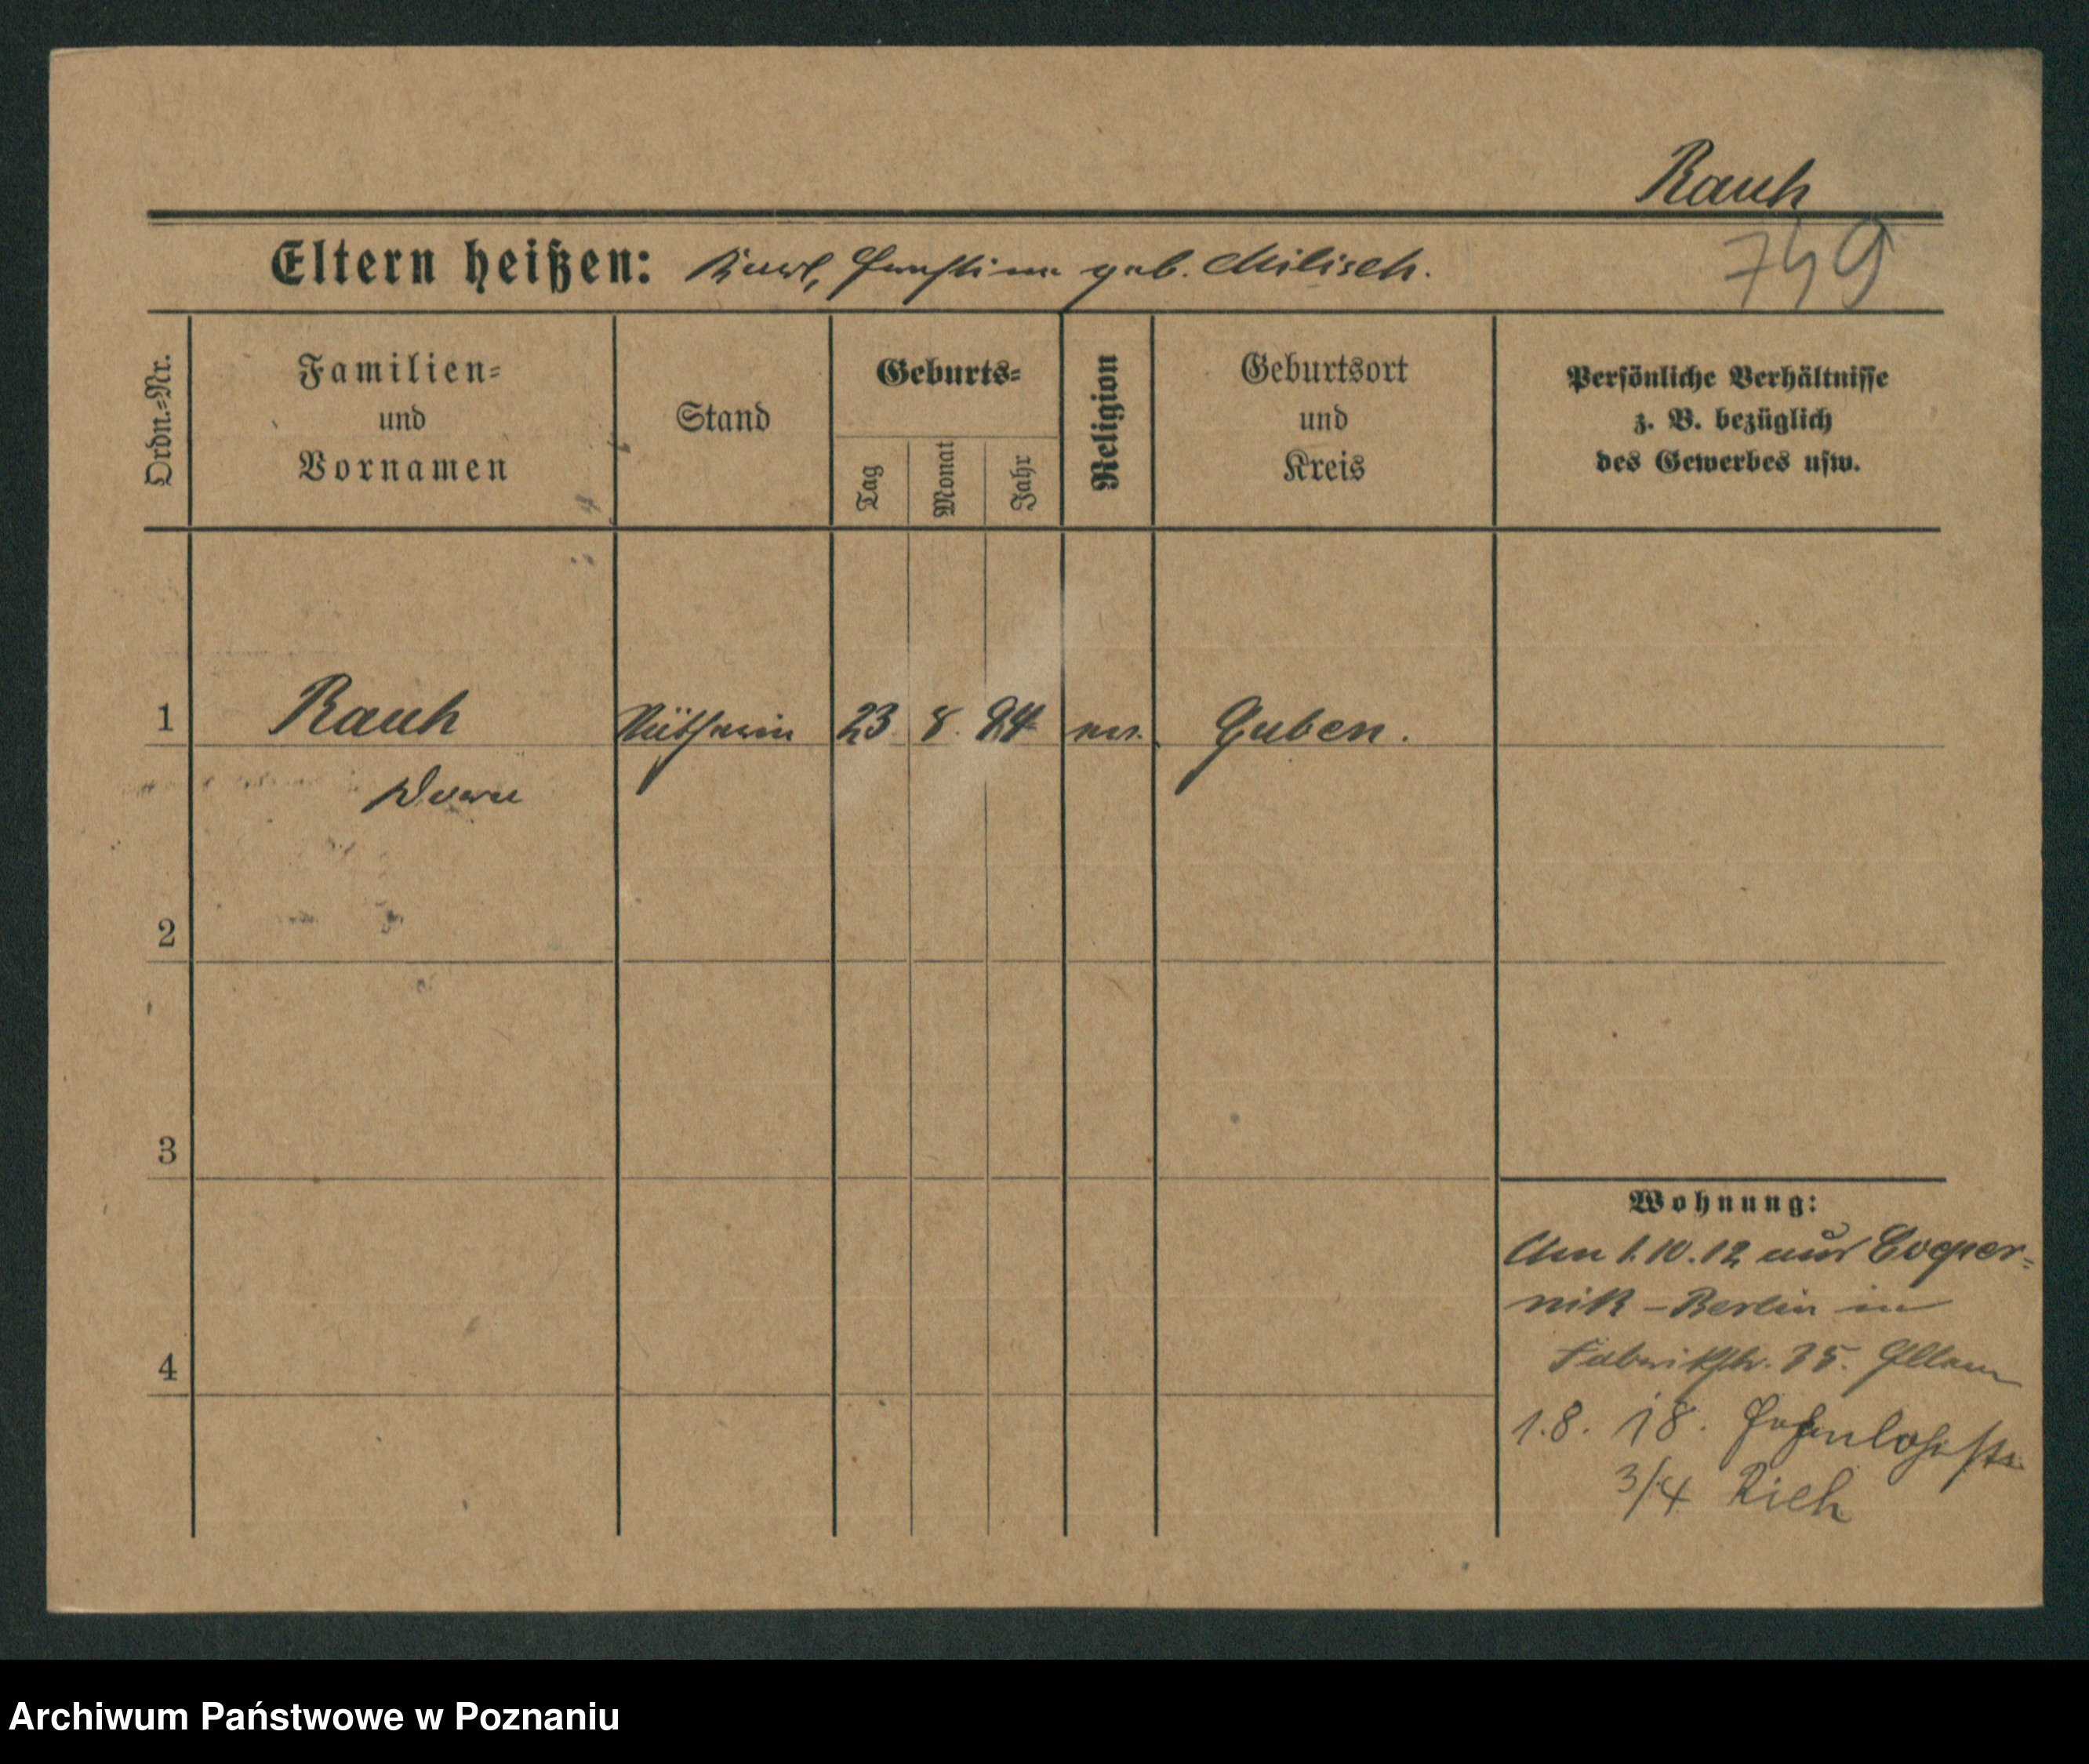 Rauh
Eltern heißen: Karl, Ernstine geb. Milisch.
749
Ordn.-Nr.
Familien-
und
Vornamen
Stand
Geburts-
Tag
Monat
Jahr
Religion
Geburtsort
und
Kreis
Persönliche Verhältnisse
z. B. bezüglich
des Gewerbes usw.
1 Rauh 23. 8. 94 ev. Guben.
2
3
4
Wohnung:
Am 1.10.12 aus Coeper-
nik - Berlin in
Fabrikstr. 35.
1.8. 18. Hohenlohestr.
3/4
Archiwum Państwowe w Poznaniu